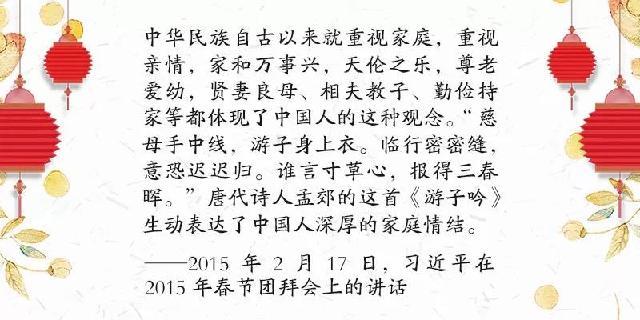 中华民族自古以来就重视家庭，重视
亲情，家和万事兴，天伦之乐，尊老
爱幼，贤妻良母、相夫教子、勤俭持
家等都体现了中国人的这种观念。“慈
母手中线，游子身上衣。临行密密缝，
意恐迟迟归。谁言寸草心，报得三春
晖。”唐代诗人孟郊的这首《游子吟》
生动表达了中国人深厚的家庭情结。
——2015 年 2 月 17 日，习近平在
2015 年春节团拜会上的讲话